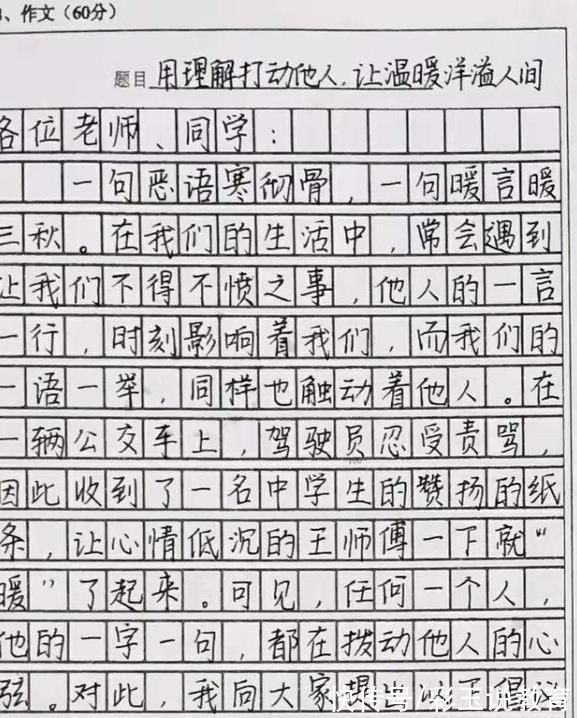 、作文（60分）
题目 用理解打动他人,让温暖洋溢人间
各位老师、同学：
一句恶语寒彻骨，一句暖言暖
三秋。在我们的生活中，常会遇到
让我们不得不愤之事，他人的一言
一行，时刻影响着我们，而我们的
一语一举，同样也触动着他人。在
一辆公交车上，驾驶员忍受责骂，
因此收到了一名中学生的赞扬的纸
条，让心情低沉的王师傅一下就“
暖”了起来。可见，任何一个人，
他的一字一句，都在拨动他人的心
弦。对此，我向大家提出
快传号 彩玉说教育